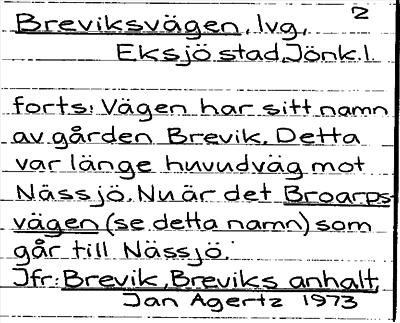 2
Breviksvägen, lvg,
Eksjö stad, Jönk. l.
forts: Vägen har sitt namn
av gården Brevik. Detta
var länge huvudväg mot
Nässjö. Nu är det Broarps-
vägen (se detta namn) som
går till Nässjö.
Jfr: Brevik, Breviks anhalt
Jan Agertz 1973